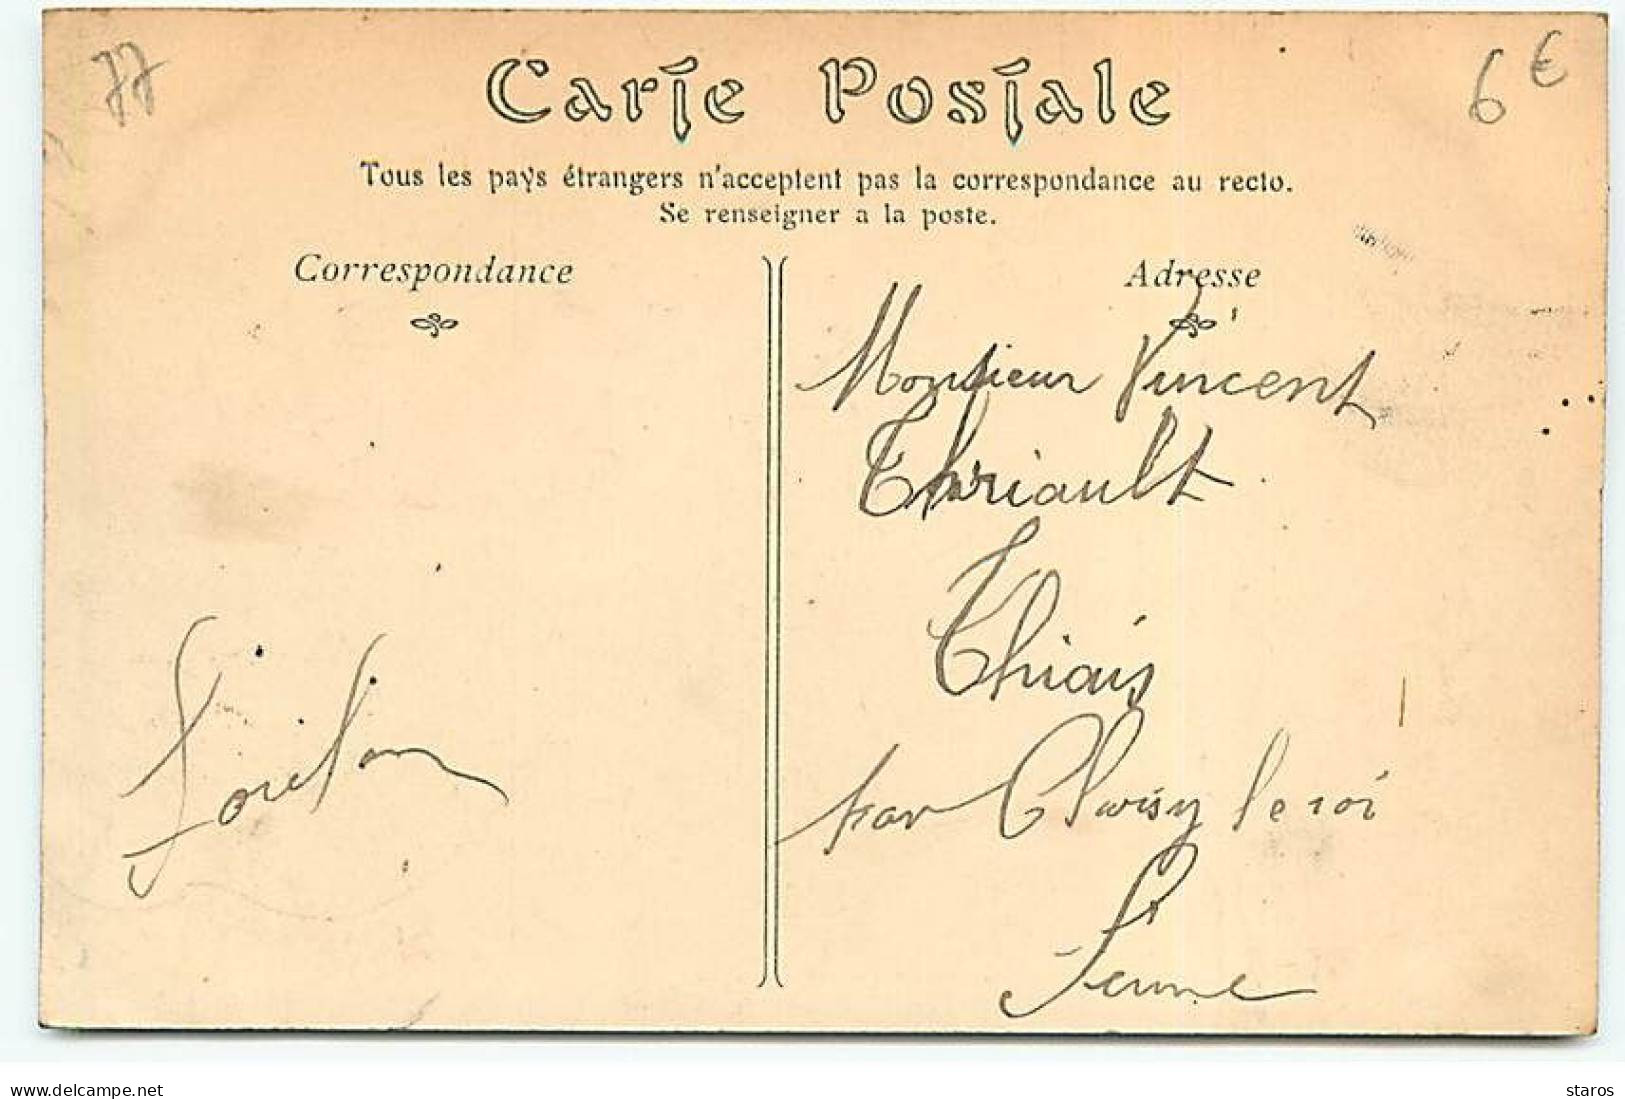 77
6 €
Carte Postale
Tous les pays étrangers n'acceptent pas la correspondance au recto.
Se renseigner a la poste.
Correspondance
Adresse
Monsieur Vincent
Thériault
Thiais
par Choisy le roi
Seine
www.delcampe.net
staros